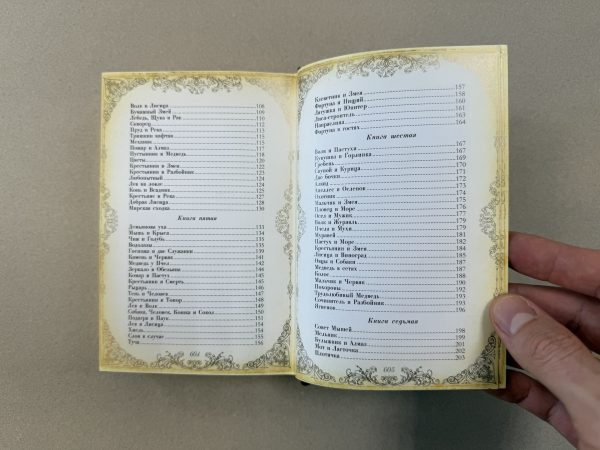 Волк и Лисица 108
Бумажный Змей 110
Лебедь, Щука и Рак 110
Скворец 112
Пруд и Река 113
Тришкин кафтан 115
Механик 115
Пожар и Алмаз 117
Пустынник и Медведь 118
Цветы 120
Крестьянин и Змея 122
Крестьянин и Разбойник 123
Любопытный 124
Лев на ловле 124
Конь и Всадник 125
Крестьяне и Река 127
Добрая Лисица 128
Мирская сходка 130
Книга пятая
Демьянова уха 133
Мышь и Крыса 134
Чиж и Голубь 135
Водолазы
Госпожа и две Служанки 140
Камень и Червяк 141
Медведь у Пчел 142
Зеркало и Обезьяна
Комар и Пастух
Крестьянин и Смерть
Рыцарь
Тень и Человек
Крестьянин и Топор
Лев и Волк
Собака, Человек, Кошка и Сокол 150
Подагра и Паук 151
Лев и Лисица 154
Хмель 154
Слон в случае 155
Туча 156
604
Клеветник и Змея 157
Фортуна и Нищий 158
Лягушка и Юпитер 160
Лиса-строитель 161
Напраслина 163
Фортуна в гостях 164
Книга шестая
Волк и Пастухи 167
Кукушка и Горлинка 167
Гребень 169
Скупой и Курица 171
Две бочки 171
Алкид 172
Апеллес и Осленок 173
Охотник 174
Мальчик и Змея 175
Пловец и Море 176
Осел и Мужик 177
Волк и Журавль 178
Пчела и Мухи 179
Муравей 181
Пастух и Море 182
Крестьянин и Змея 184
Лисица и Виноград 185
Овцы и Собаки 185
Медведь в сетях 187
Колос 188
Мальчик и Червяк 190
Похороны 192
Трудолюбивый Медведь 193
Сочинитель и Разбойник 193
Ягненок 196
Книга седьмая
Совет Мышей 198
Мельник 199
Булыжник и Алмаз 201
Мот и Ласточка 202
Плотичка 203
605